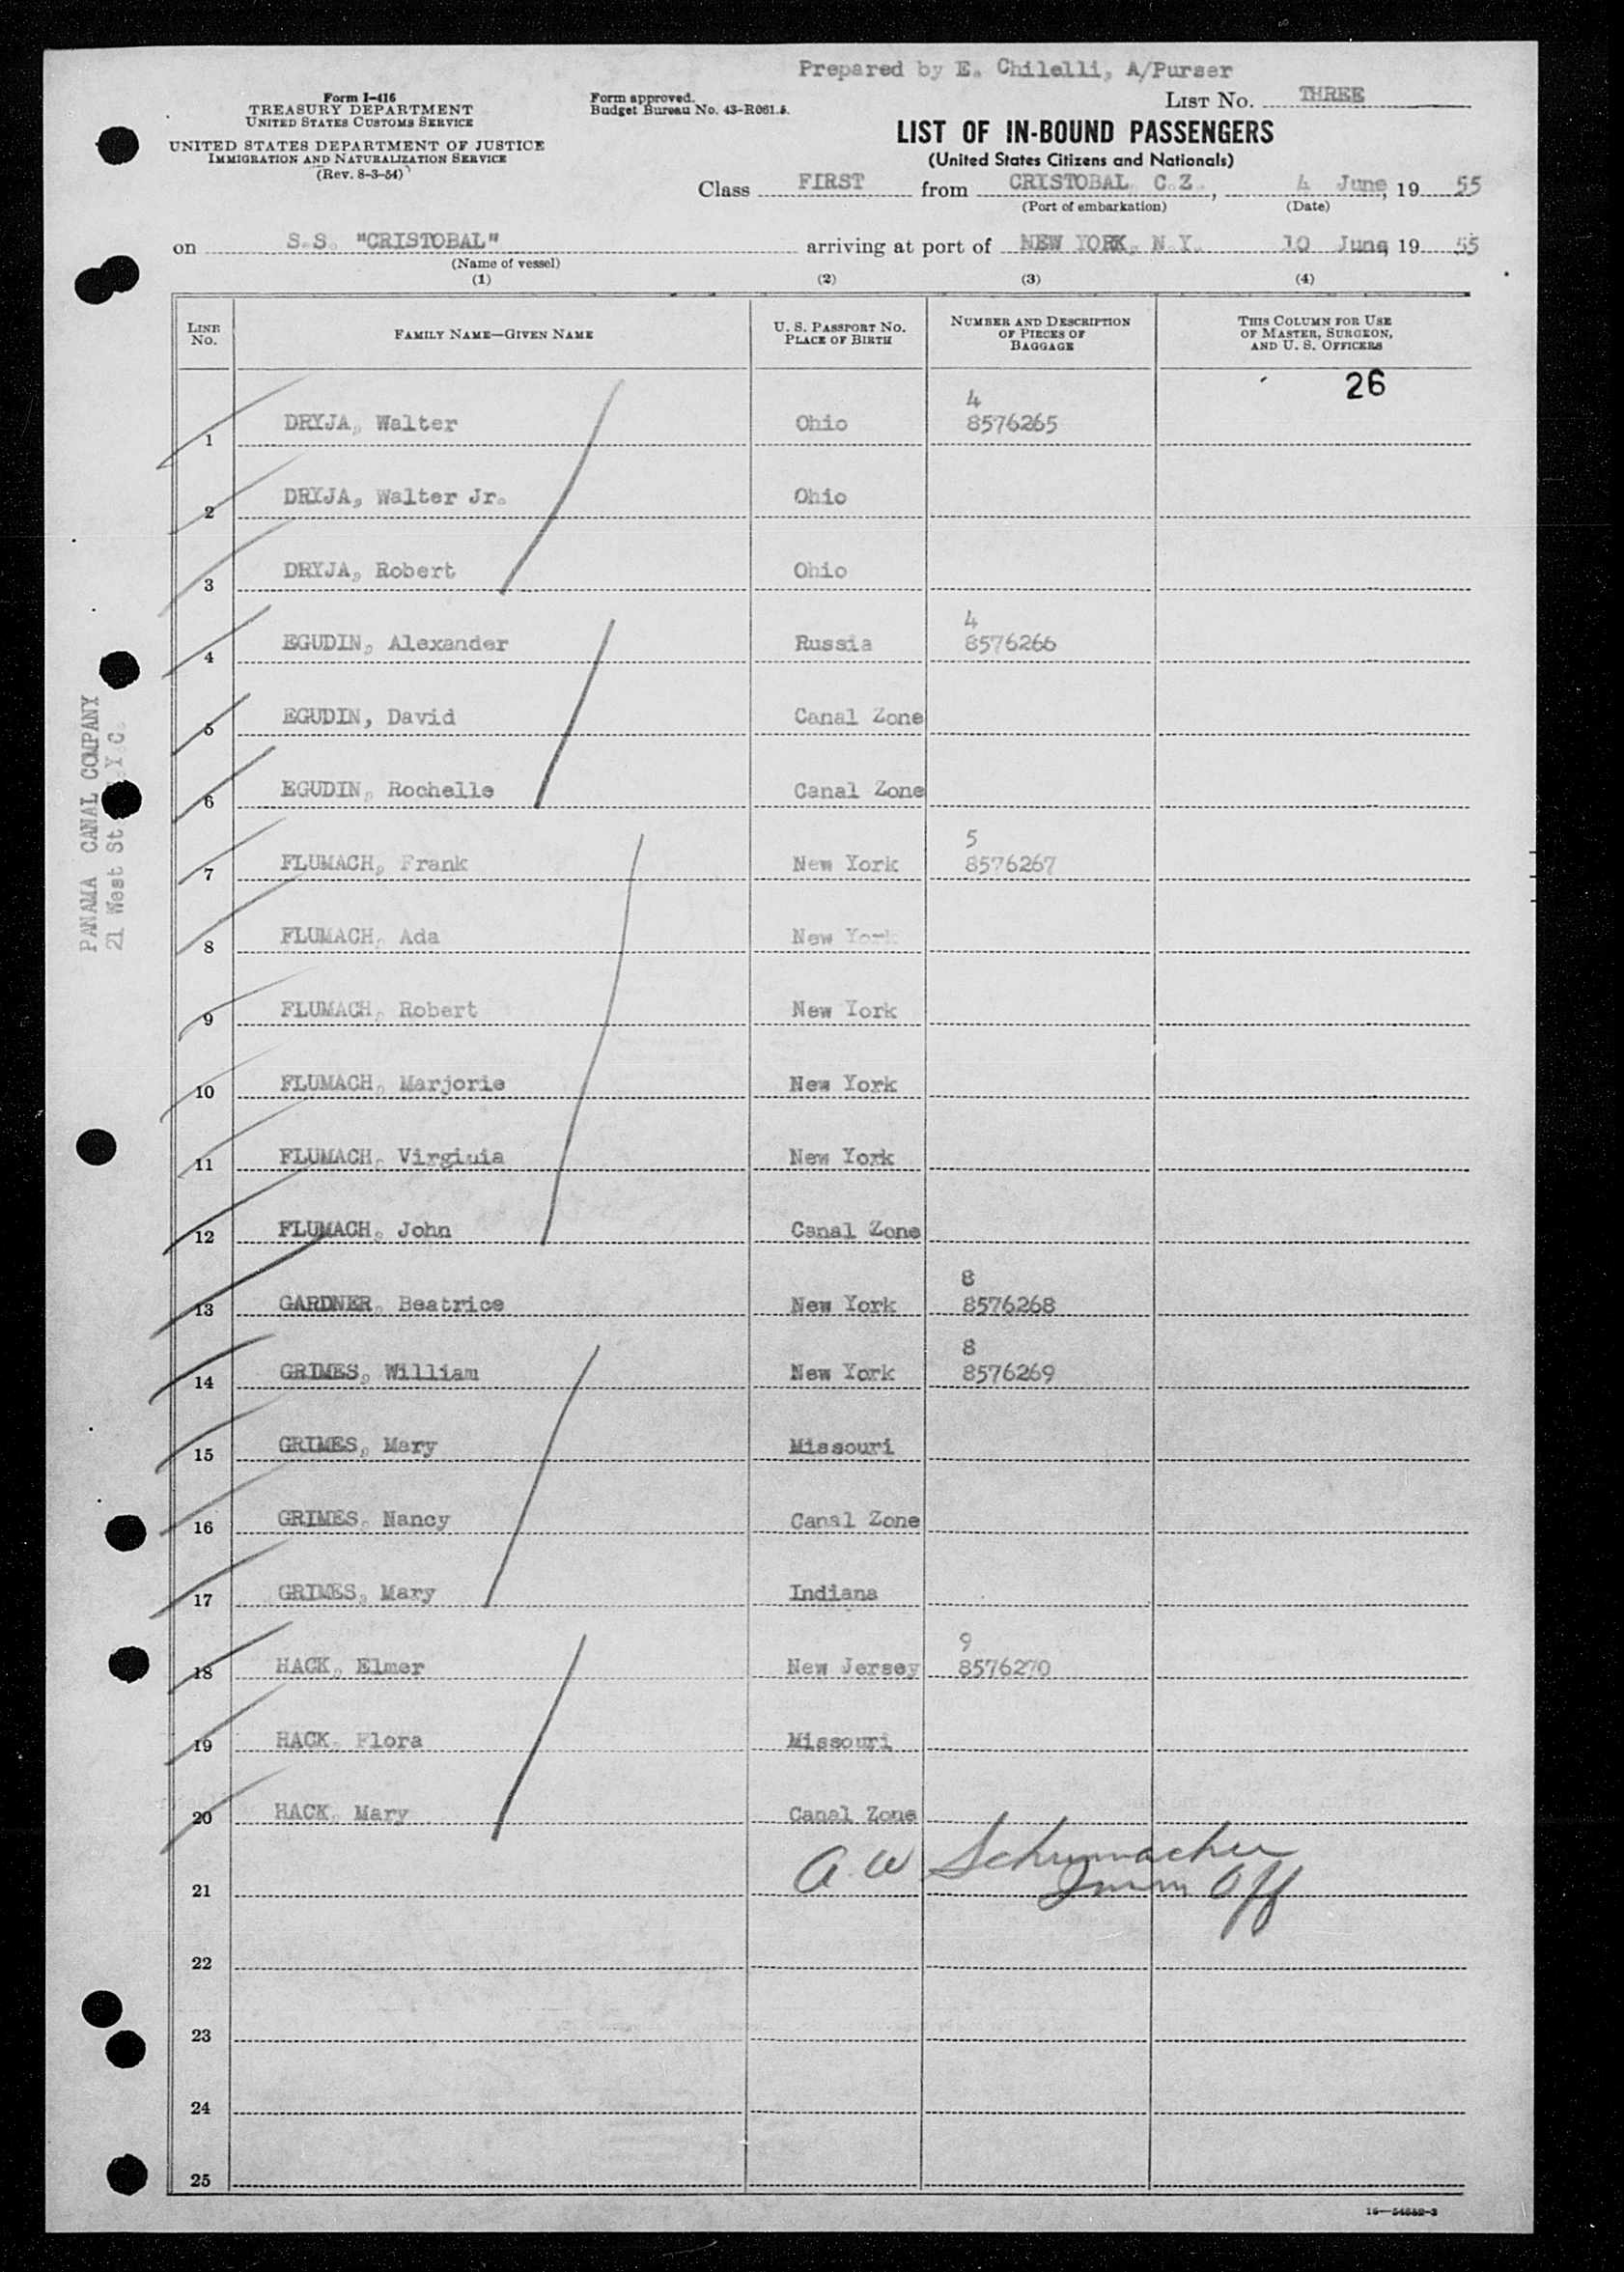 Prepared by E. Chilelli, A/Purser
Form I-416
TREASURY DEPARTMENT
UNITED STATES CUSTOMS SERVICE
UNITED STATES DEPARTMENT OF JUSTICE
IMMIGRATION AND NATURALIZATION SERVICE
(Rev. 8-3-54)
Form approved.
Budget Bureau No. 43-R061.5.
LIST NO. THREE
LIST OF IN-BOUND PASSENGERS
(United States Citizens and Nationals)
Class FIRST from CRISTOBAL, C.Z., 4 June, 19 55
(Port of embarkation) (Date)
on S.S. "CRISTOBAL" arriving at port of NEW YORK, N.Y. 10 June, 19 55
(Name of vessel)
(1) (2) (3) (4)
LINE NO. FAMILY NAME—GIVEN NAME U. S. PASSPORT NO. PLACE OF BIRTH NUMBER AND DESCRIPTION OF PIECES OF BAGGAGE THIS COLUMN FOR USE OF MASTER, SURGEON, AND U. S. OFFICERS
26
4
1 DRYJA, Walter Ohio 8576265
2 DRYJA, Walter Jr. Ohio
3 DRYJA, Robert Ohio
4
4 EGUDIN, Alexander Russia 8576266
5 EGUDIN, David Canal Zone
6 EGUDIN, Rochelle Canal Zone
5
7 FLUMACH, Frank New York 8576267
8 FLUMACH, Ada New York
9 FLUMACH, Robert New York
10 FLUMACH, Marjorie New York
11 FLUMACH, Virginia New York
12 FLUMACH, John Canal Zone
8
13 GARDNER, Beatrice New York 8576268
8
14 GRIMES, William New York 8576269
15 GRIMES, Mary Missouri
16 GRIMES, Nancy Canal Zone
17 GRIMES, Mary Indiana
9
18 HACK, Elmer New Jersey 8576270
19 HACK, Flora Missouri
20 HACK, Mary Canal Zone
A. W. Schumacher
Imm Off
21
22
23
24
25
PANAMA CANAL COMPANY
21 West St Y.C.